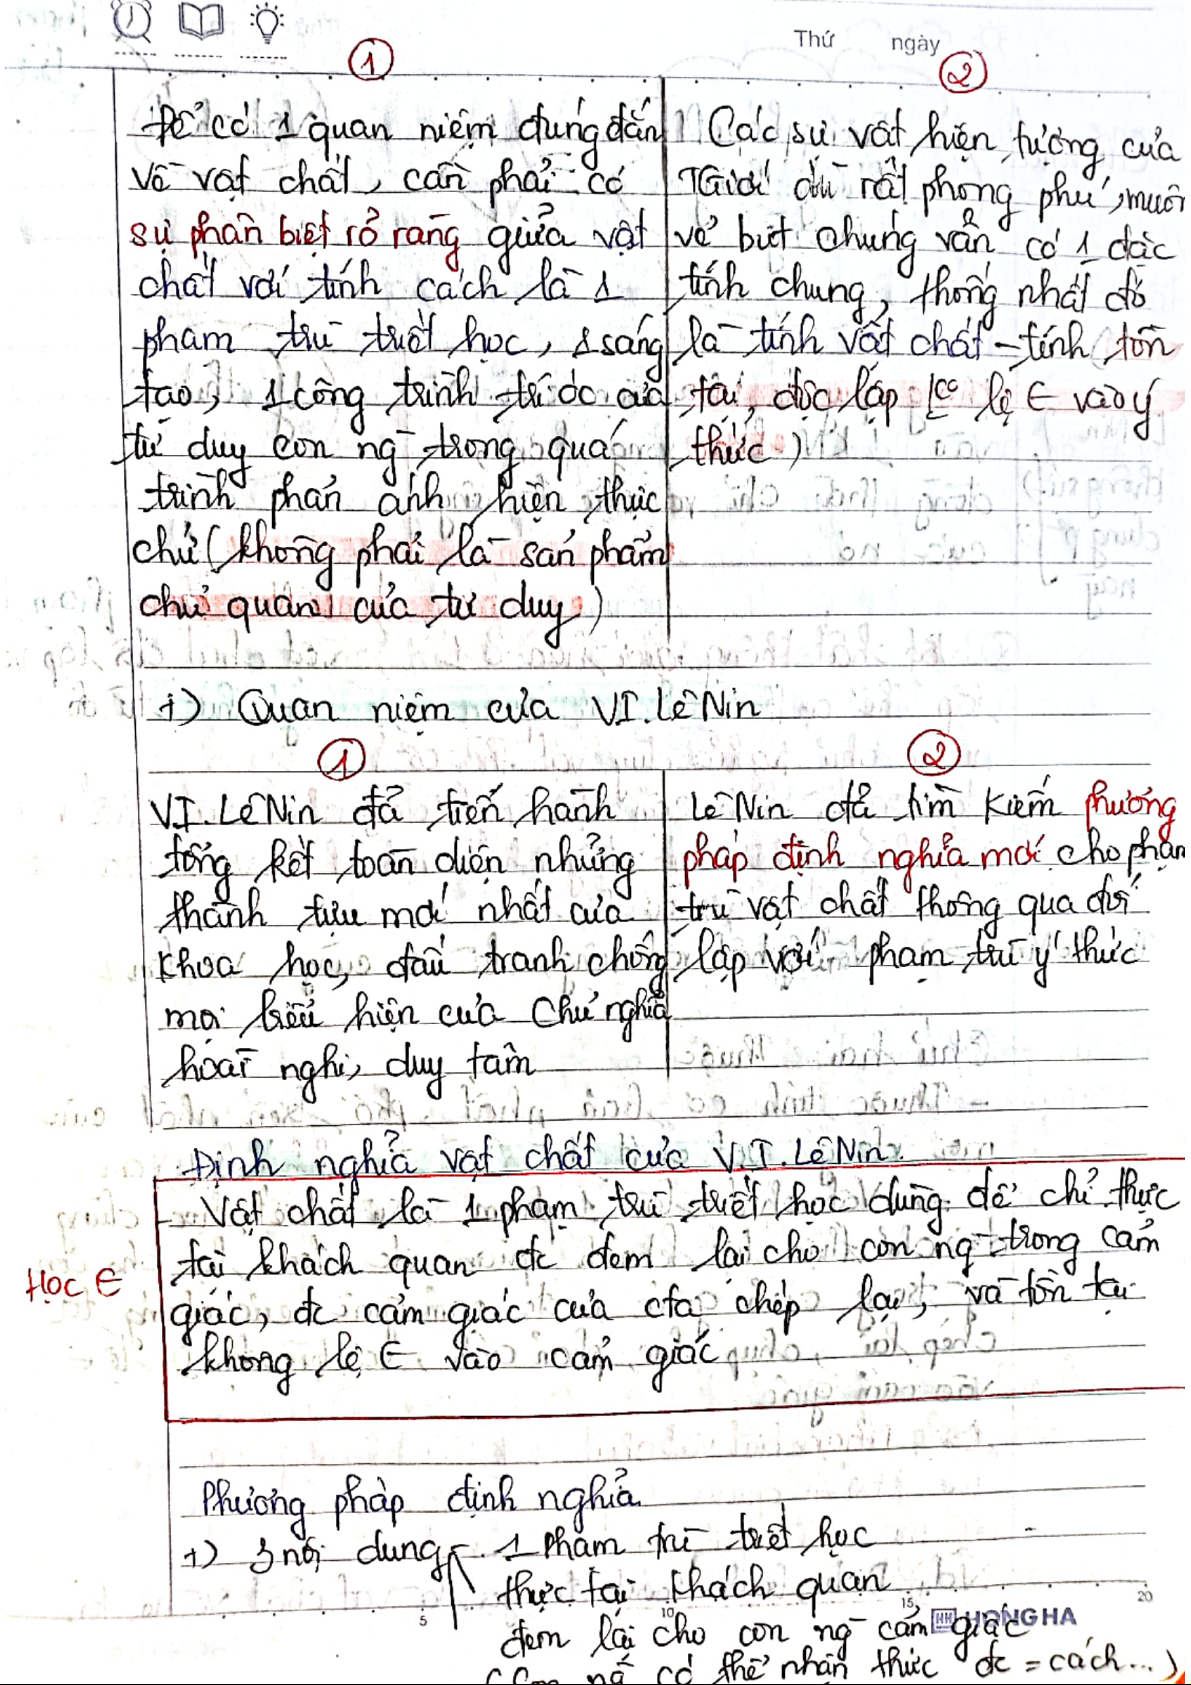 Thứ ngày
①
Để có 1 quan niệm đúng đắn
về vật chất, cần phải có
sự phân biệt rỏ ràng giửa vật
chất với tính cách là 1
phạm trù triết học, 1 sáng
tạo, 1 công trình trí óc của
tư duy con ng trong quá
trình phản ánh hiện thực
chứ (không phải là sản phẩm
chủ quan của tư duy)
②
Các sự vật hiện tượng của
TGiới dù rất phong phú, muôn
vẻ but chúng vẫn có 1 đặc
tính chung, thống nhất đó
là tính vật chất - tính tồn
tại, độc lập ko lệ ∈ vào ý
thức)
+) Quan niệm của VI. LêNin
①
V.I. LêNin đả tiến hành
tổng kết toàn diện những
thành tựu mới nhất của
khoa học, đấu tranh chống
mọi biểu hiện của Chủ nghĩa
hoài nghi, duy tâm
②
LêNin đả tìm kiếm phương
pháp định nghĩa mới cho phạm
trù vật chất thông qua đối
lập với phạm trù ý thức
Định nghĩa vật chất của V.I. LêNin
Vật chất là 1 phạm trù triết học dùng để chỉ thực
tại khách quan đc đem lại cho con ng trong cảm
Học ∈
giác, đc cảm giác của cta chép lại, và tồn tại
không lệ ∈ vào cảm giác
Phương pháp định nghĩa
+) 3 nội dung 1 phạm trù triết học
thực tại khách quan
đem lại cho con ng cảm giác
(Con ng có thể nhận thức đc = cách...)
5 10 15 20
HỒNG HÀ